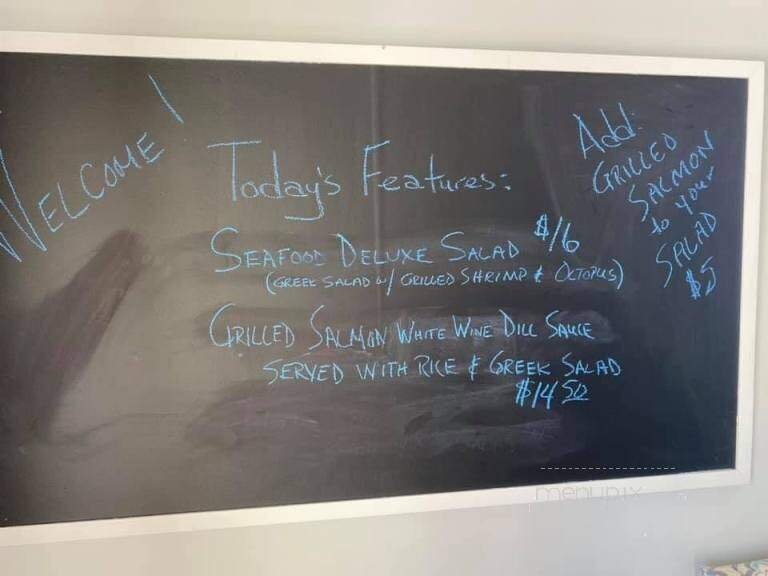 WELCOME!
Today's Features:
SEAFOOD DELUXE SALAD $16
(GREEK SALAD w/ GRILLED SHRIMP & OCTOPUS)
GRILLED SALMON WHITE WINE DILL SAUCE
SERVED WITH RICE & GREEK SALAD
$14 50
Add:
GRILLED
SALMON
to your
SALAD
$5
menupix